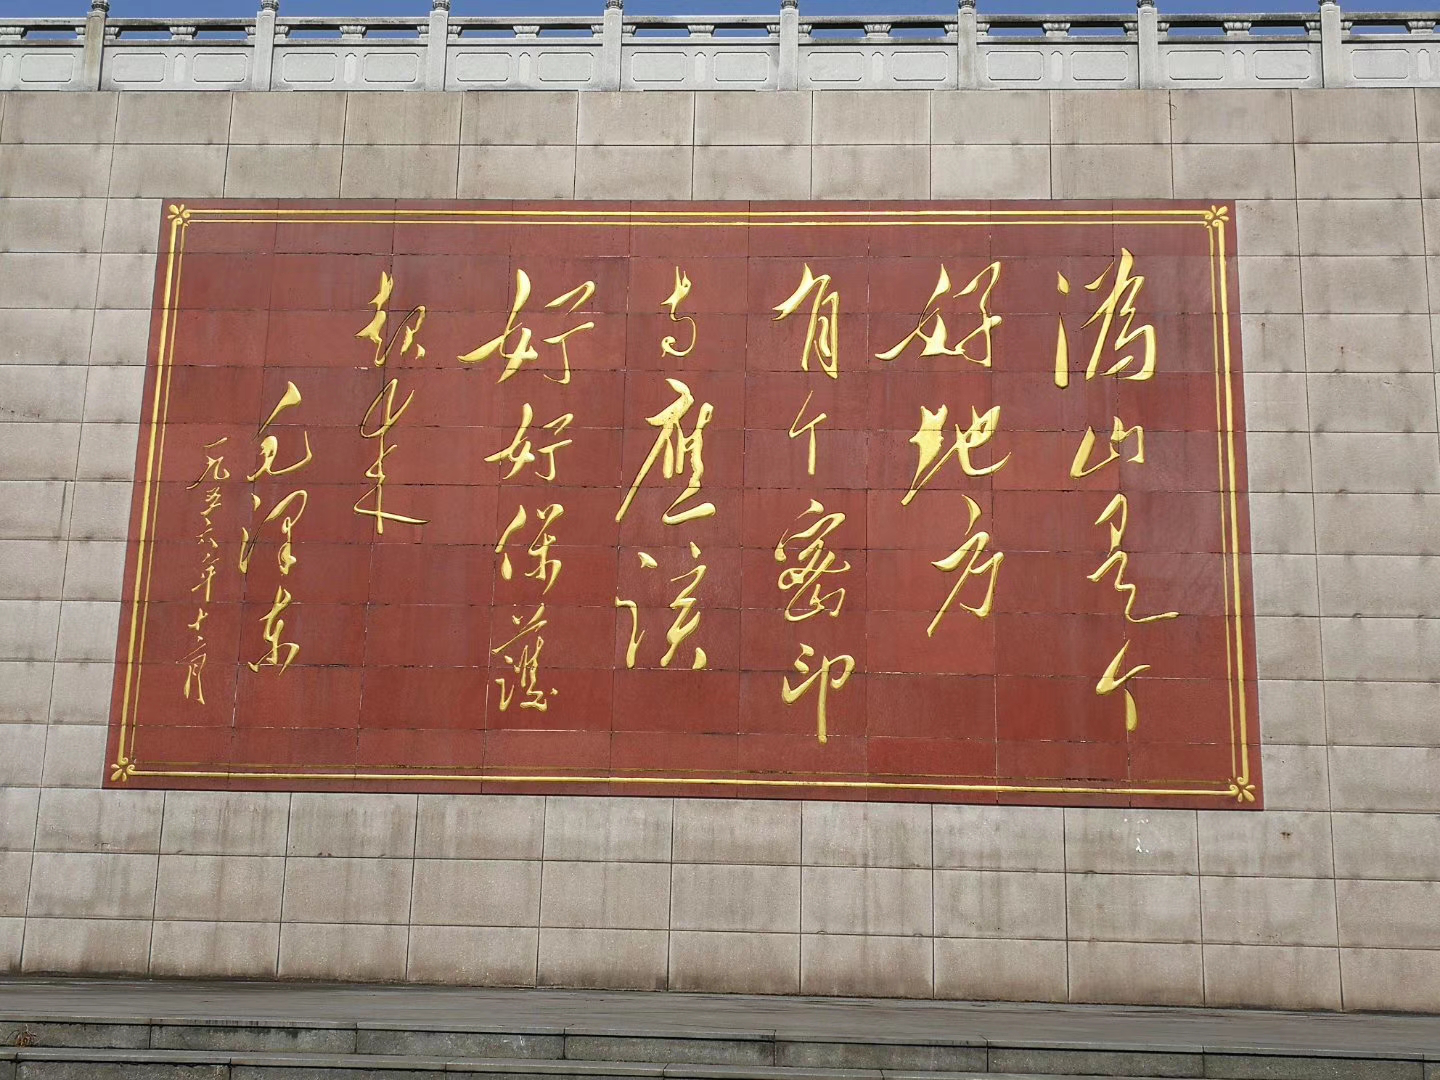 沩山是个
好地方
有个密印
寺應该
好好保護
起来
毛泽东
一九五六年十二月